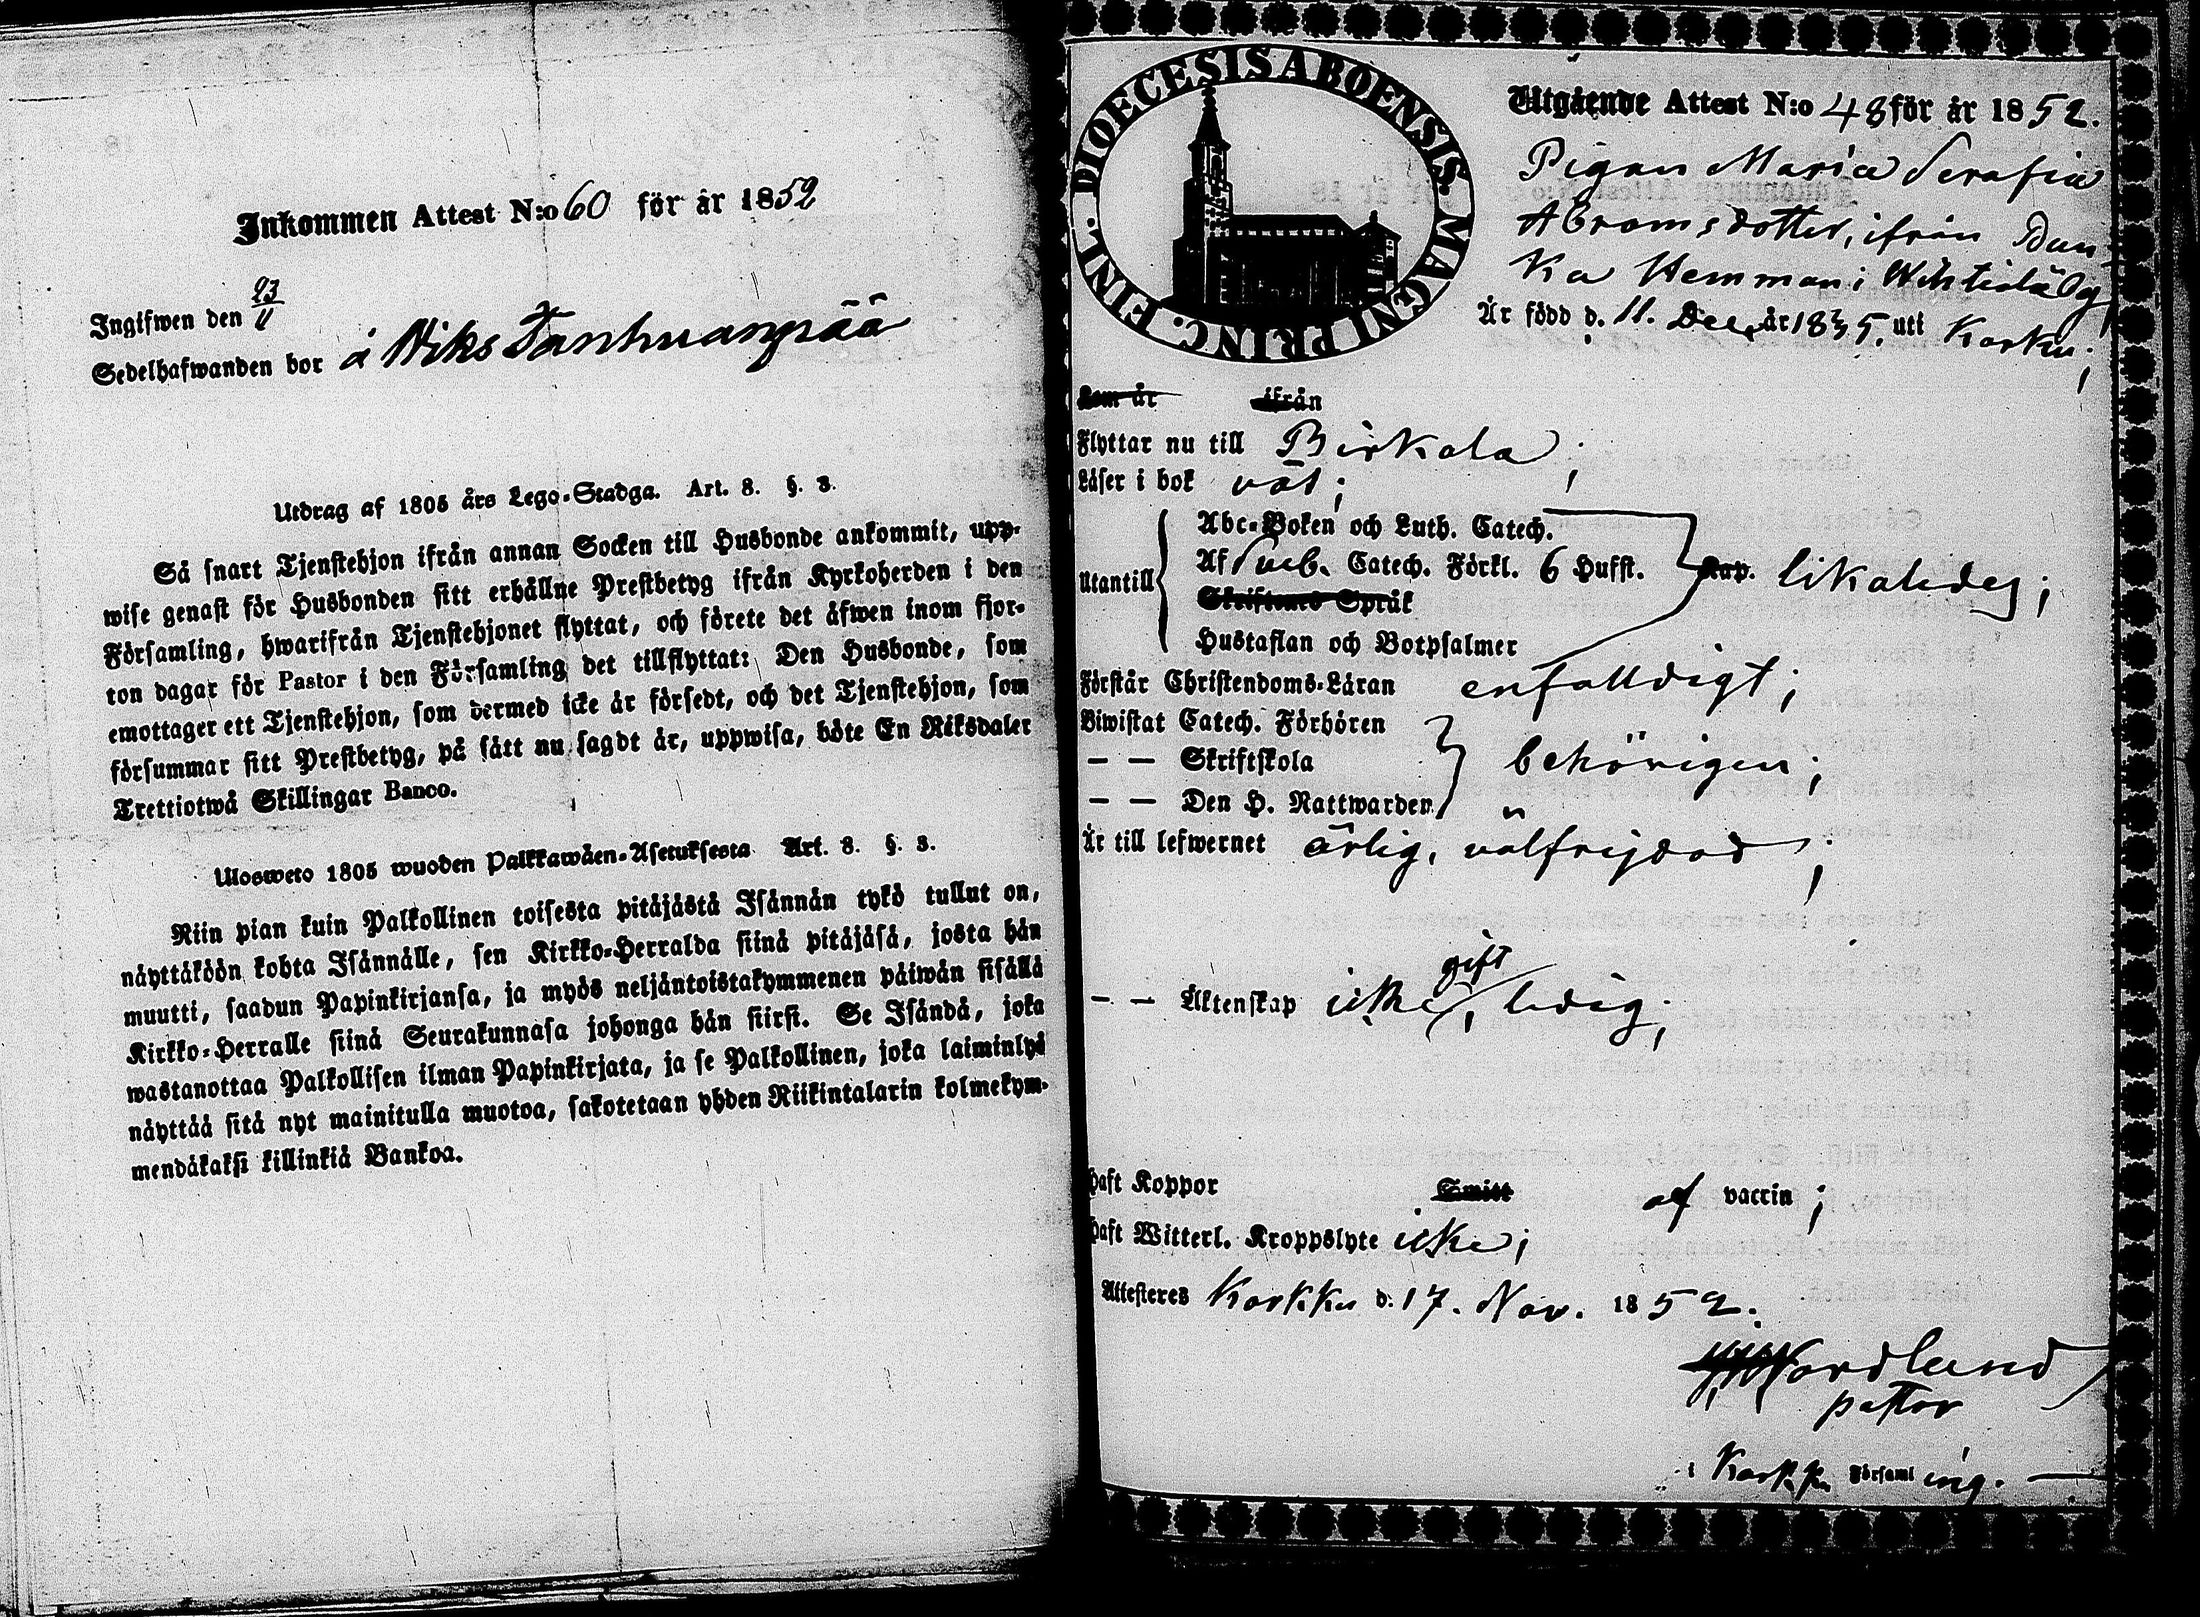 Inkommen Attest N:o 60 för år 1852
Ingifwen den 23/11
Sedelhafwanden bor å Niks Tanhuanpää
Utdrag af 1805 års Lego-Stadga. Art. 8. §. 3.
Så snart Tjenstehjon ifrån annan Socken till Husbonde ankommit, upp-
wise genast för Husbonden sitt erhållne Prestbetyg ifrån Kyrkoherden i den
Församling, hwarifrån Tjenstehjonet flyttat, och förete det äfwen inom fjor-
ton dagar för Pastor i den Församling det tillflyttat: Den Husbonde, som
emottager ett Tjenstehjon, som dermed icke är försedt, och det Tjenstehjon, som
försummar sitt Prestbetyg, på sätt nu sagdt är, uppwisa, böte En Riksdaler
Trettiotwå Skillingar Banco.
Ulosweto 1805 wuoden Palkkawäen-Asetuksesta Art. 8. §. 3.
Niin pian kuin Palkollinen toisesta pitäjästä Isännän tykö tullut on,
näyttäköön kohta Isännälle, sen Kirkko-Herralda siinä pitäjäsä, josta hän
muutti, saadun Papinkirjansa, ja myös neljäntoistakymmenen päiwän sisällä
Kirkko-Herralle siinä Seurakunnasa johonga hän siirsi. Se Isändä, joka
wastanottaa Palkollisen ilman Papinkirjata, ja se Palkollinen, joka laiminlyö
näyttää sitä nyt mainitulla muotoa, sakotetaan yhden Riikintalarin kolmekym-
mendäkaksi killinkiä Bankoa.
DIOECESIS ABOENSIS. MAGNI PRINC. FINL.
Utgående Attest N:o 48 för år 1852.
Pigan Maria Serafia
Abramsdotter, ifrån Dun-
ka Hemman i
Är född d. 11. Dec. år 1835. uti Karku;
kom år ifrån
Flyttar nu till Birkala;
Läser i bok väl;
Utantill
Abc-Boken och Luth. Catech.
Af Sveb. Catech. Förkl. 6 Hufst. Kap. likaledes;
Skriftenes Språk
Hustaflan och Botpsalmer
Förstår Christendoms-Läran enfalldigt;
Biwistat Catech. Förhören
— — Skriftskola behörigen;
— — Den H. Nattwarden
Är till lefwernet ärlig, välfrejdad;
— — Äktenskap icke gift, ledig;
Haft Koppor Smitt af vaccin;
Haft Witterl. Kroppslyte icke;
Attesteres Karkku d. 17. Nov. 1852.
Nordlund
pastor
i Karkku Församling.